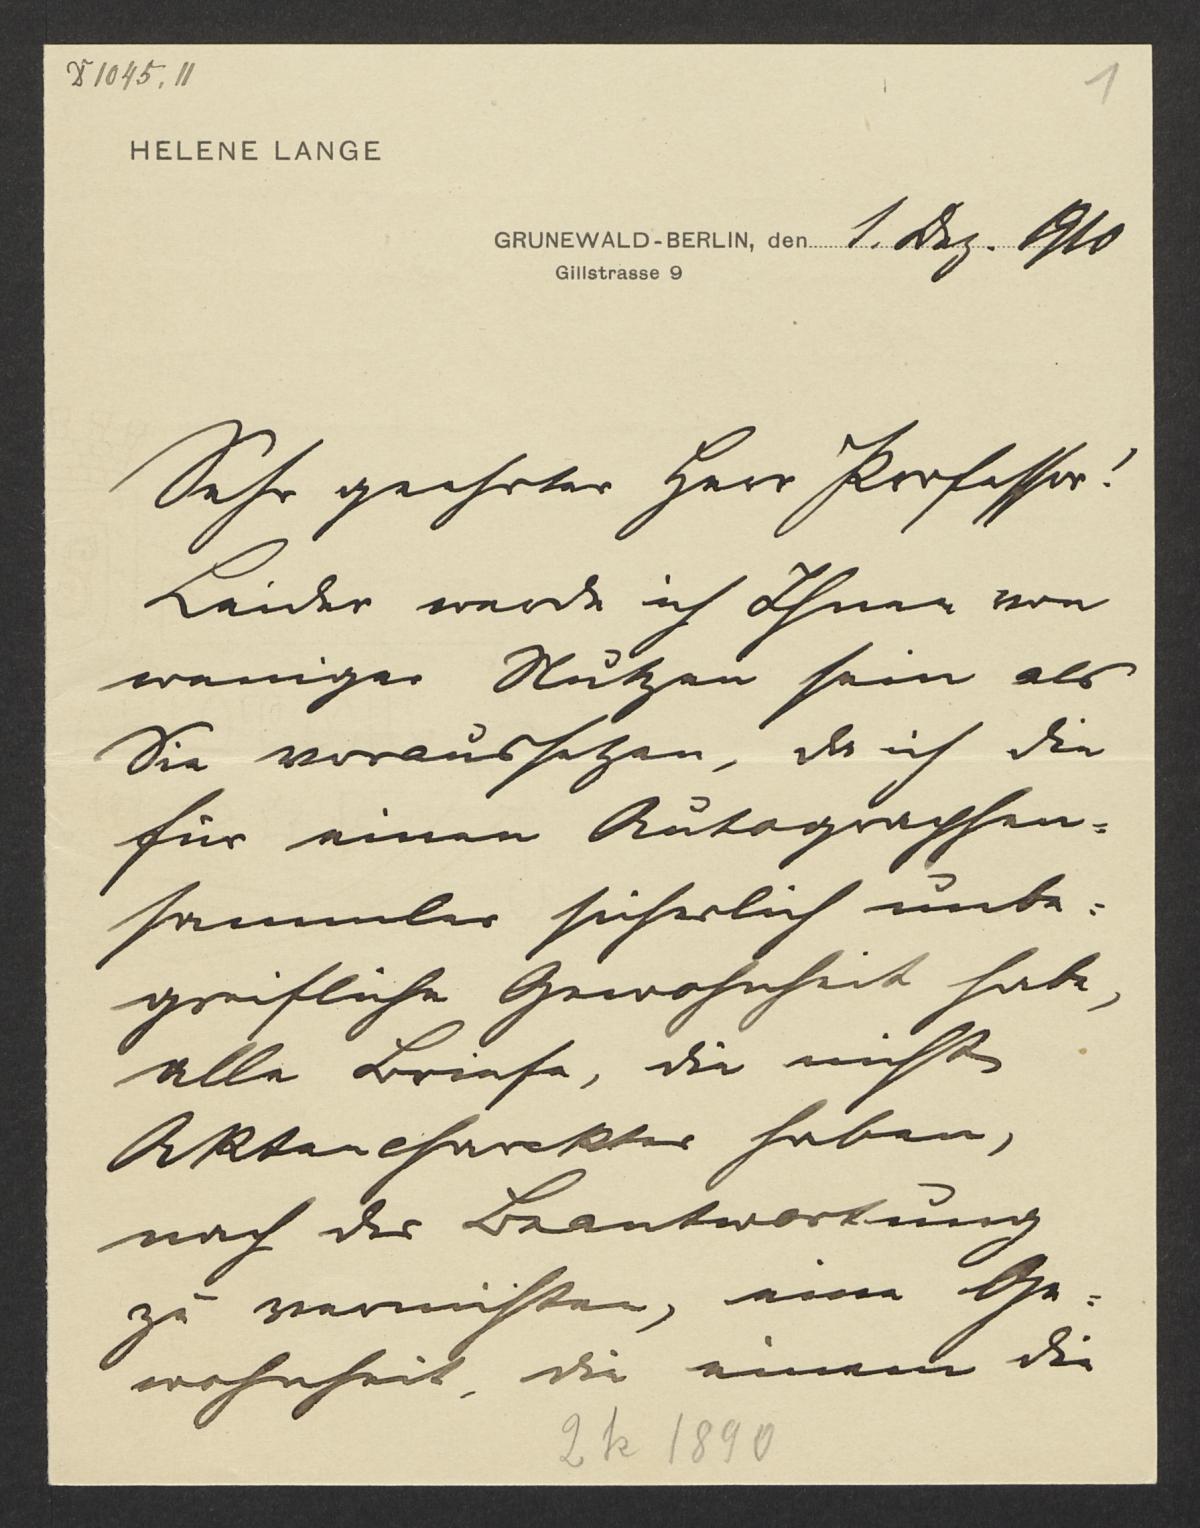 1045, 11
1
HELENE LANGE
GRUNEWALD-BERLIN, den 1. Dez. 1910
Gillstrasse 9
Sehr geehrter Herr Professor!
Leider werde ich Ihnen von
weniger Nutzen sein als
Sie voraussetzen, da ich die
für einen Autographen=
sammler sicherlich unbe=
greifliche Gewohnheit habe,
alle Briefe, die nicht
Aktencharakter haben,
nach der Beantwortung
zu vernichten, eine Ge=
wohnheit, die einem die
2k 1890